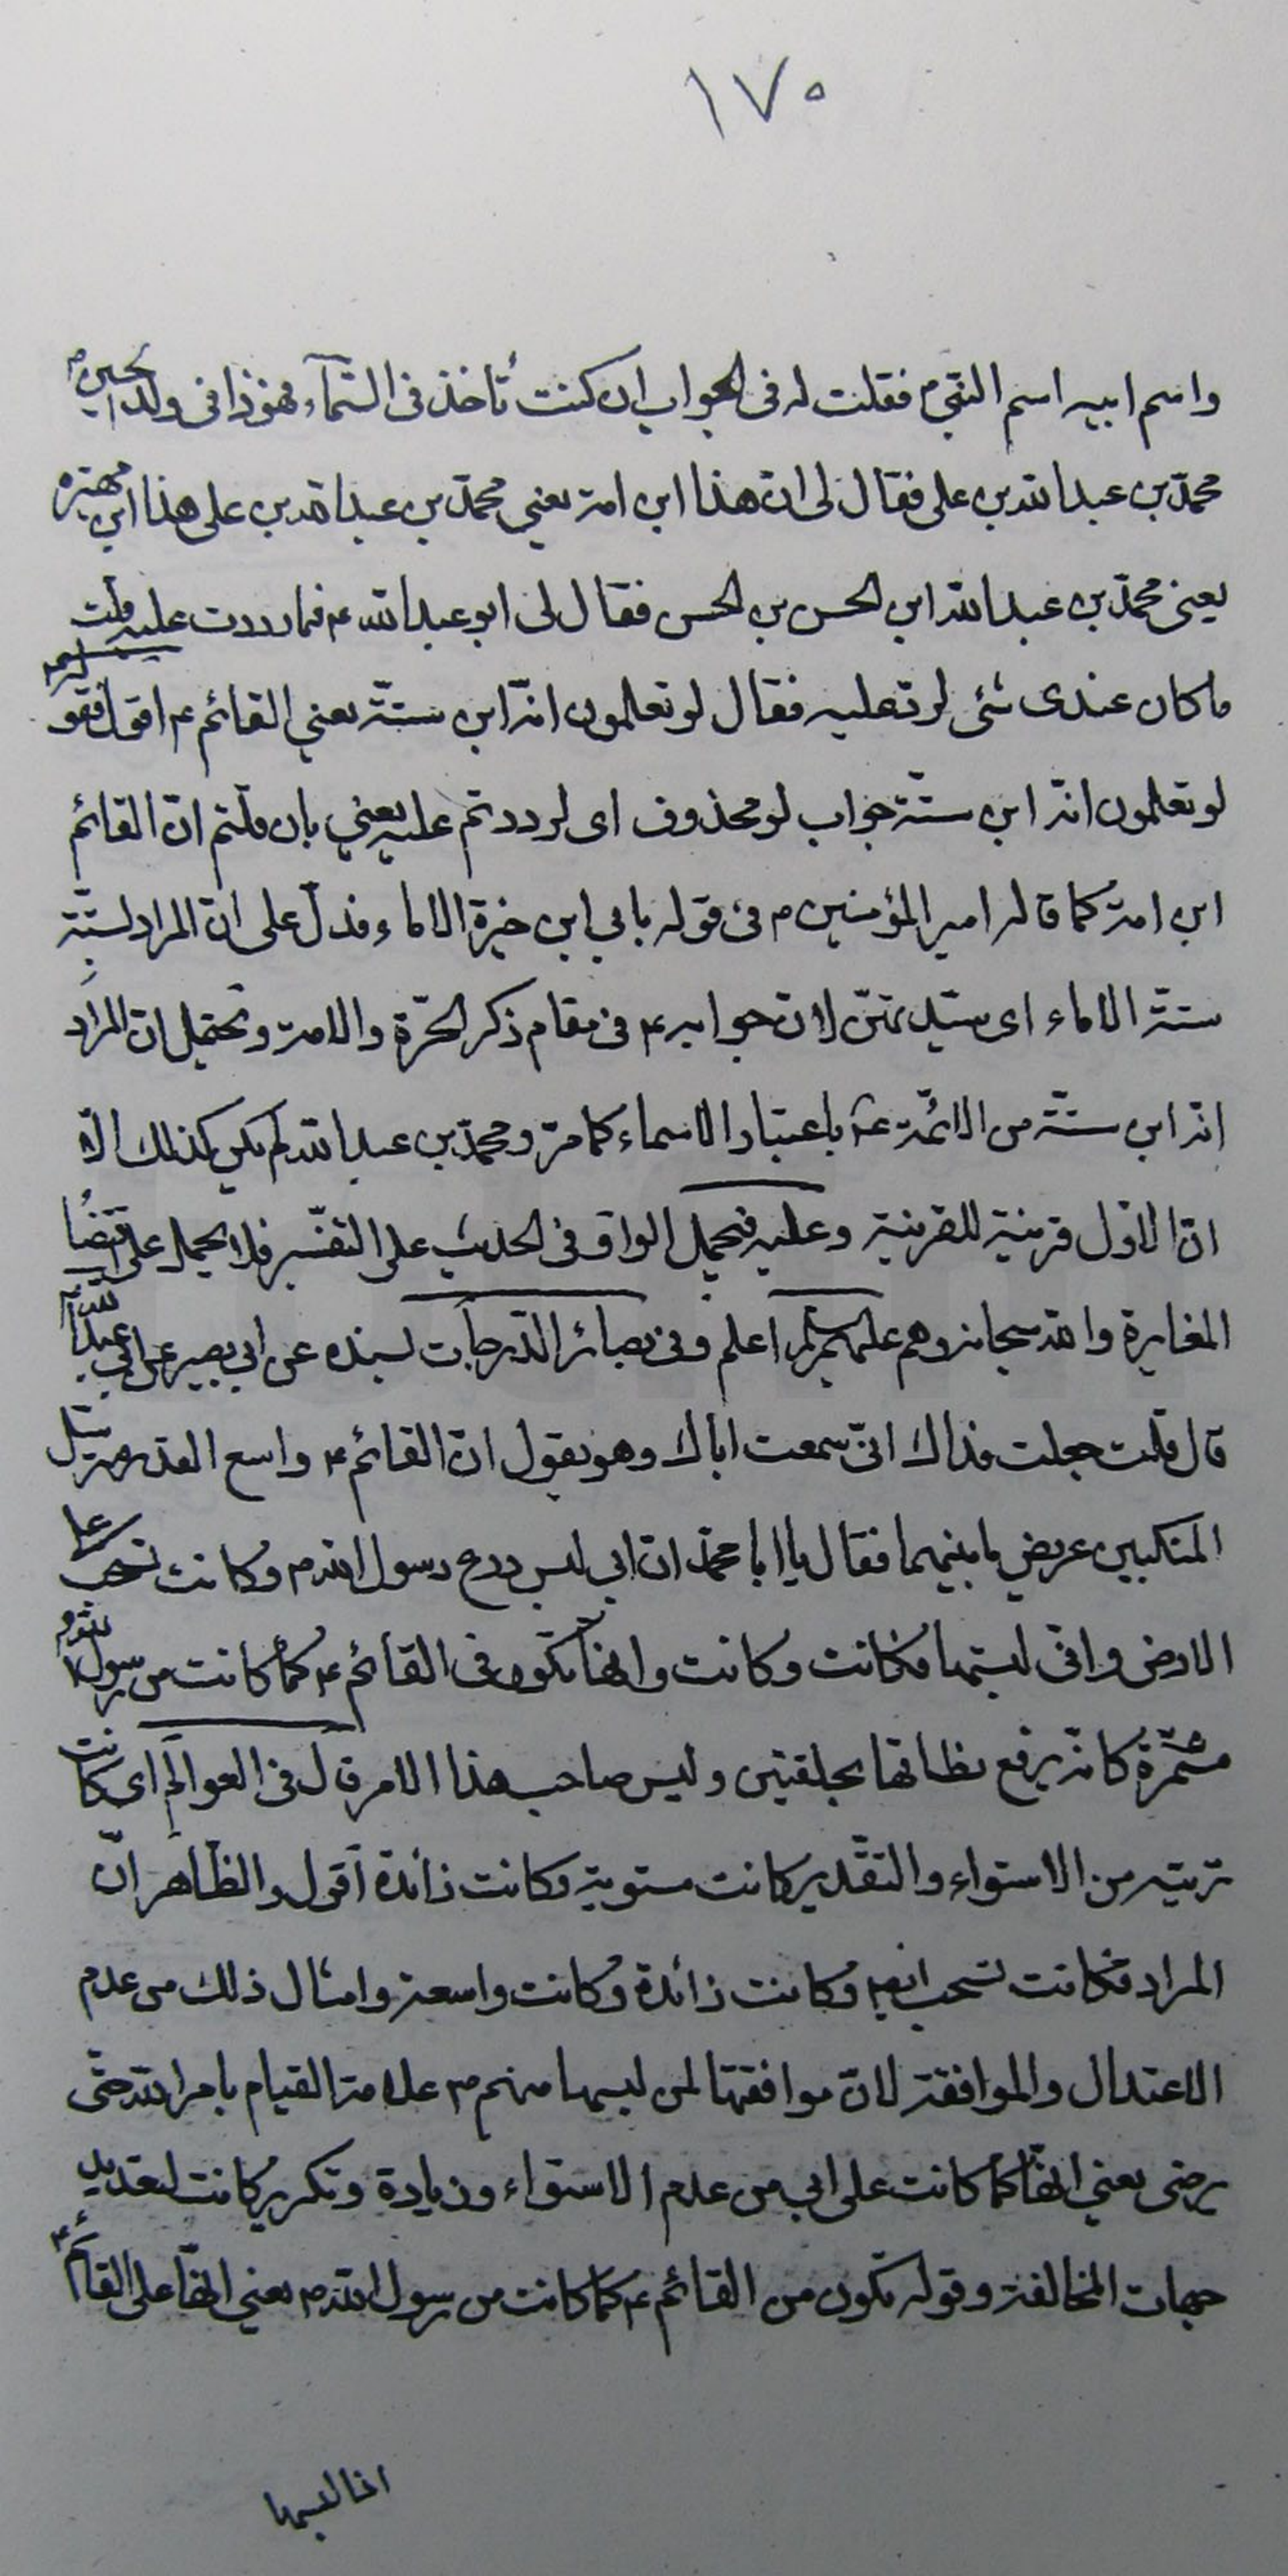 ١٧٠
واسم ابيه اسم النقي م فقلت له في الجواب ان كنت تأخذ في السّماء فهوذا في ولد الحسين م
محمّد بن عبدالله بن علي فقال لي انّ هذا ابن امة يعني محمّد بن عبدالله بن علي هذا ابن مهيرة
يعني محمّد بن عبدالله ابن الحسن بن الحسن فقال لي ابو عبدالله ع فما رددت عليه قلت
ما كان عندي شئ لردّ عليه فقال لو تعلمون انّه ابن ستّة يعني القائم ع اقول فقوله
لو تعلمون انّه ابن ستّة جواب لو محذوف اي لرددتم عليه يعني بان قلتم انّ القائم
ابن امة كما قاله امير المؤمنين م في قوله بابي ابن خيرة الاماء فدلّ على انّ المراد بستّة
ستة الاماء اي سيّدتهنّ لانّ جوابه ع في مقام ذكر الحرّة والامة ويحتمل ان المراد
انّه ابن ستّة من الائمّة ع باعتبار الاسماء كما مرّ ومحمّد بن عبدالله لم يكن كذلك الّا
انّ الاوّل قرينة للقرينة وعليه فيحمل الواو في الحديث على التفسير فلا يحمل على اقتضاء
المغايرة والله سبحانه وهم عليهم السلام اعلم وفي بصائر الدّرجات بسنده عن ابي بصير عن ابي عبدالله
قال قلت جعلت فداك انّي سمعت اباك وهو يقول انّ القائم ع واسع الصدر مسترسل
المنكبين عريض ما بينهما فقال يا ابا محمّد ان ابي لبس درع رسول الله م وكانت تسحب على
الارض وانّي لبستها فكانت وكانت وانّها تكون في القائم ع كما كانت من رسول الله م
مشمّرة كانّه يرفع نطاقها بحلقتين وليس صاحب هذا الامر قال في العوالم اي كانت
تربته من الاستواء والتقدير كانت مستوية وكانت زائدة اقول والظّاهر انّ
المراد فكانت تسحب ايضا وكانت زائدة وكانت واسعة وامثال ذلك من عدم
الاعتدال والموافقة لانّ موافقتها لمن لبسها منهم ع علامة القيام بامر الله حتّى
يرضى يعني انّها كما كانت على ابي من عدم الاستواء وزيادة وتكرير كانت لتعديد
جهات المخالفة وقوله تكون من القائم ع كما كانت من رسول الله م يعني انّها على القائم ع
اذا لبسها